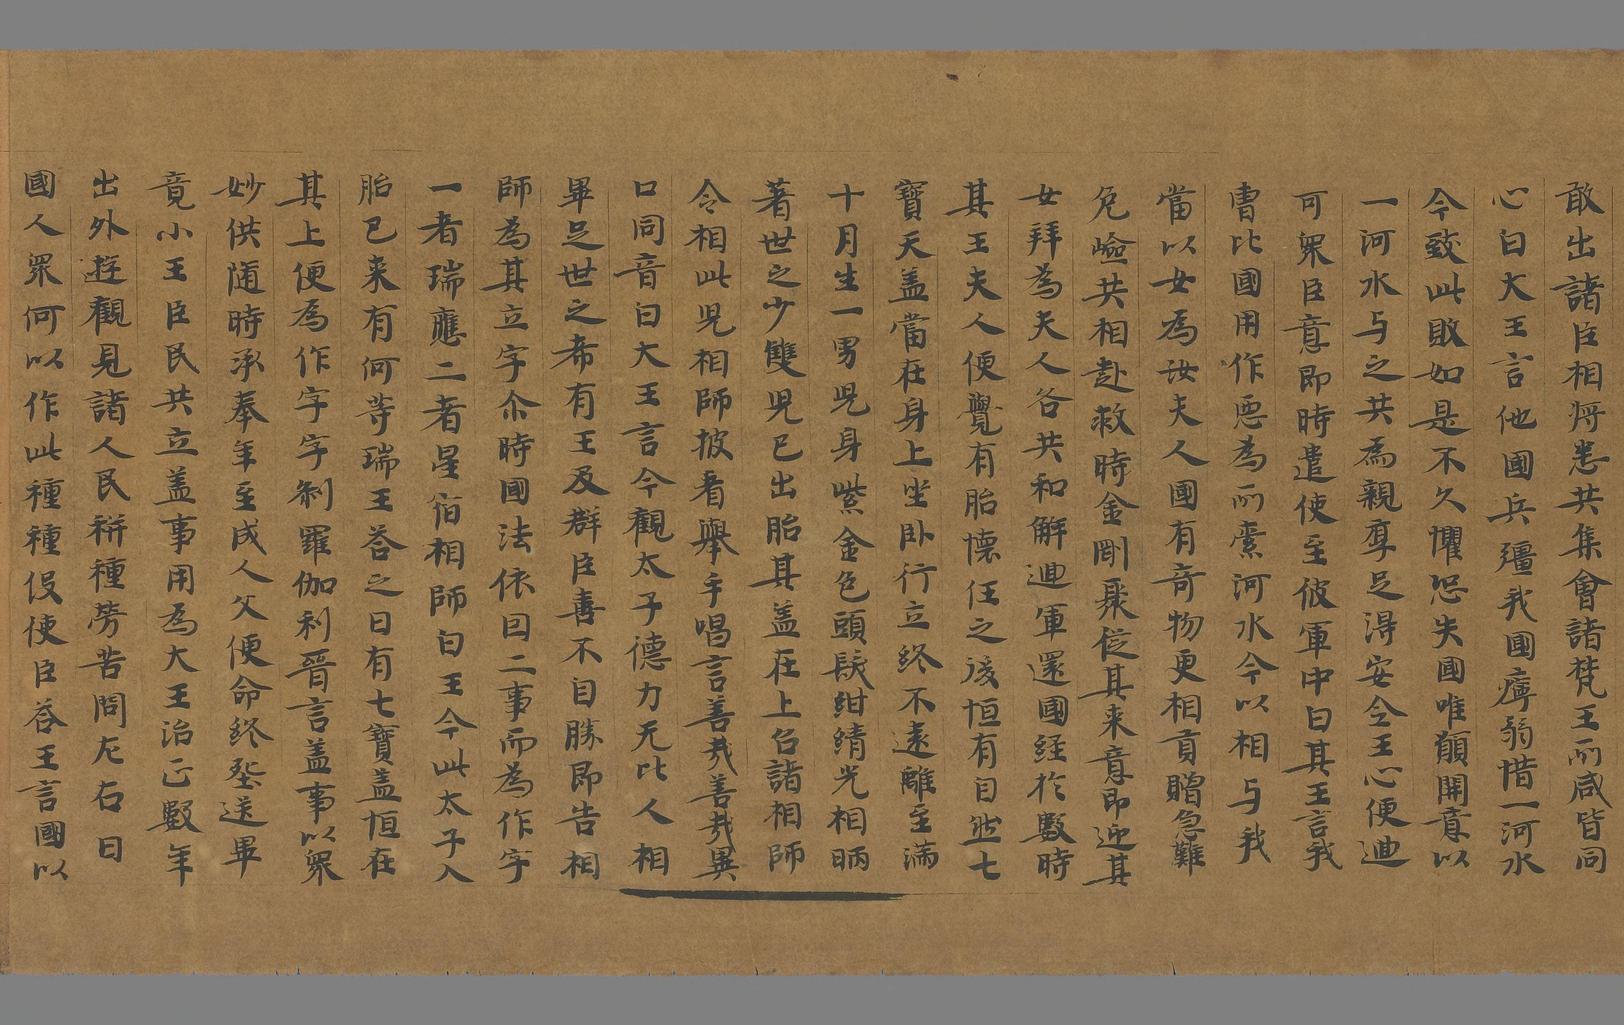 敢出諸臣相將悉共集會諸梵王所咸皆同
心白大王言他國兵彊我國瘦弱惜一河水
今致此敗如是不久懼恐失國唯願開意以
一河水与之共為親厚足得安全王心便迴
可眾臣意即時遣使至彼軍中白其王言我
曹比國用作惡為所索河水今以相与我
當以女為汝夫人國有奇物更相貢贈急難
危嶮共相赴救時金剛聚從其来意即迎其
女拜為夫人各共和解迴軍還國經於數時
其王夫人便覺有胎懷任之後恒有自然七
寶天盖當在身上坐卧行立終不遠離至滿
十月生一男兒身紫金色頭髮紺綪光相昞
著世之少雙兒已出胎其盖在上召諸相師
令相此兒相師披看舉手唱言善哉善哉異
口同音白大王言今觀太子德力无比人相
畢足世之希有王及群臣喜不自勝即告相
師為其立字尒時國法依因二事而為作字
一者瑞應二者星宿相師白王今此太子入
胎已来有何等瑞王荅之曰有七寶盖恒在
其上便為作字字剎羅伽利晉言盖事以眾
妙供随時承奉年至成人父便命終塟送畢
竟小王臣民共立盖事用為大王治正數年
出外遊觀見諸人民耕種勞苦問左右曰
國人眾何以作此種種伇使臣荅王言國以